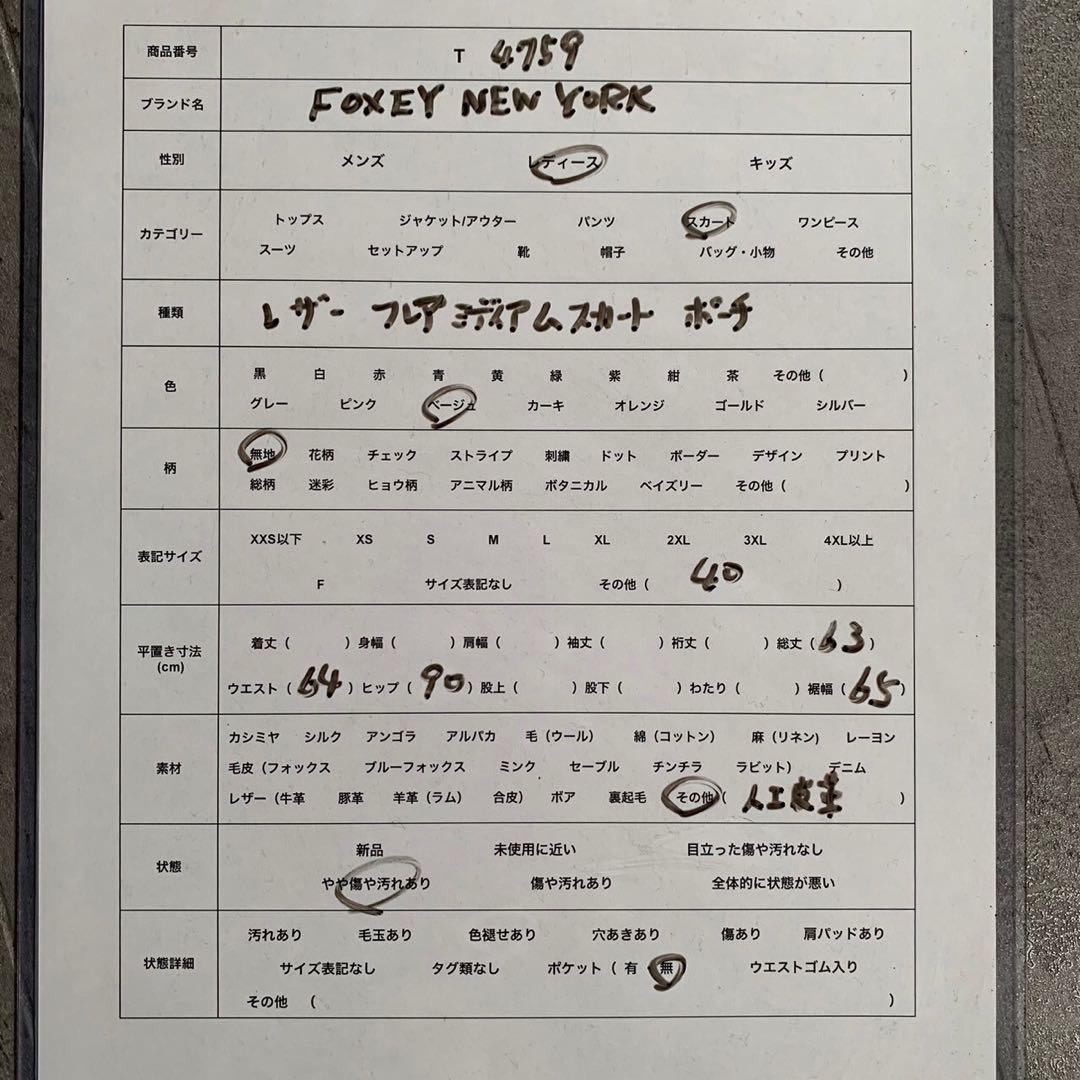 商品番号 T 4759
ブランド名 FOXEY NEW YORK
性別 メンズ レディース キッズ
カテゴリー トップス ジャケット/アウター パンツ スカート ワンピース
スーツ セットアップ 靴 帽子 バッグ・小物 その他
種類 レザー フレア ミディアムスカート ポーチ
色 黒 白 赤 青 黄 緑 紫 紺 茶 その他( )
グレー ピンク ベージュ カーキ オレンジ ゴールド シルバー
柄 無地 花柄 チェック ストライプ 刺繍 ドット ボーダー デザイン プリント
総柄 迷彩 ヒョウ柄 アニマル柄 ボタニカル ペイズリー その他( )
表記サイズ XXS以下 XS S M L XL 2XL 3XL 4XL以上
F サイズ表記なし その他( 40 )
平置き寸法 (cm) 着丈( )身幅( )肩幅( )袖丈( )裄丈( )総丈(63)
ウエスト(64)ヒップ(90)股上( )股下( )わたり( )裾幅(65)
素材 カシミヤ シルク アンゴラ アルパカ 毛(ウール) 綿(コットン) 麻(リネン) レーヨン
毛皮(フォックス ブルーフォックス ミンク セーブル チンチラ ラビット) デニム
レザー(牛革 豚革 羊革(ラム) 合皮) ボア 裏起毛 その他( 人工皮革 )
状態 新品 未使用に近い 目立った傷や汚れなし
やや傷や汚れあり 傷や汚れあり 全体的に状態が悪い
状態詳細 汚れあり 毛玉あり 色褪せあり 穴あきあり 傷あり 肩パッドあり
サイズ表記なし タグ類なし ポケット( 有 無 ) ウエストゴム入り
その他 ( )